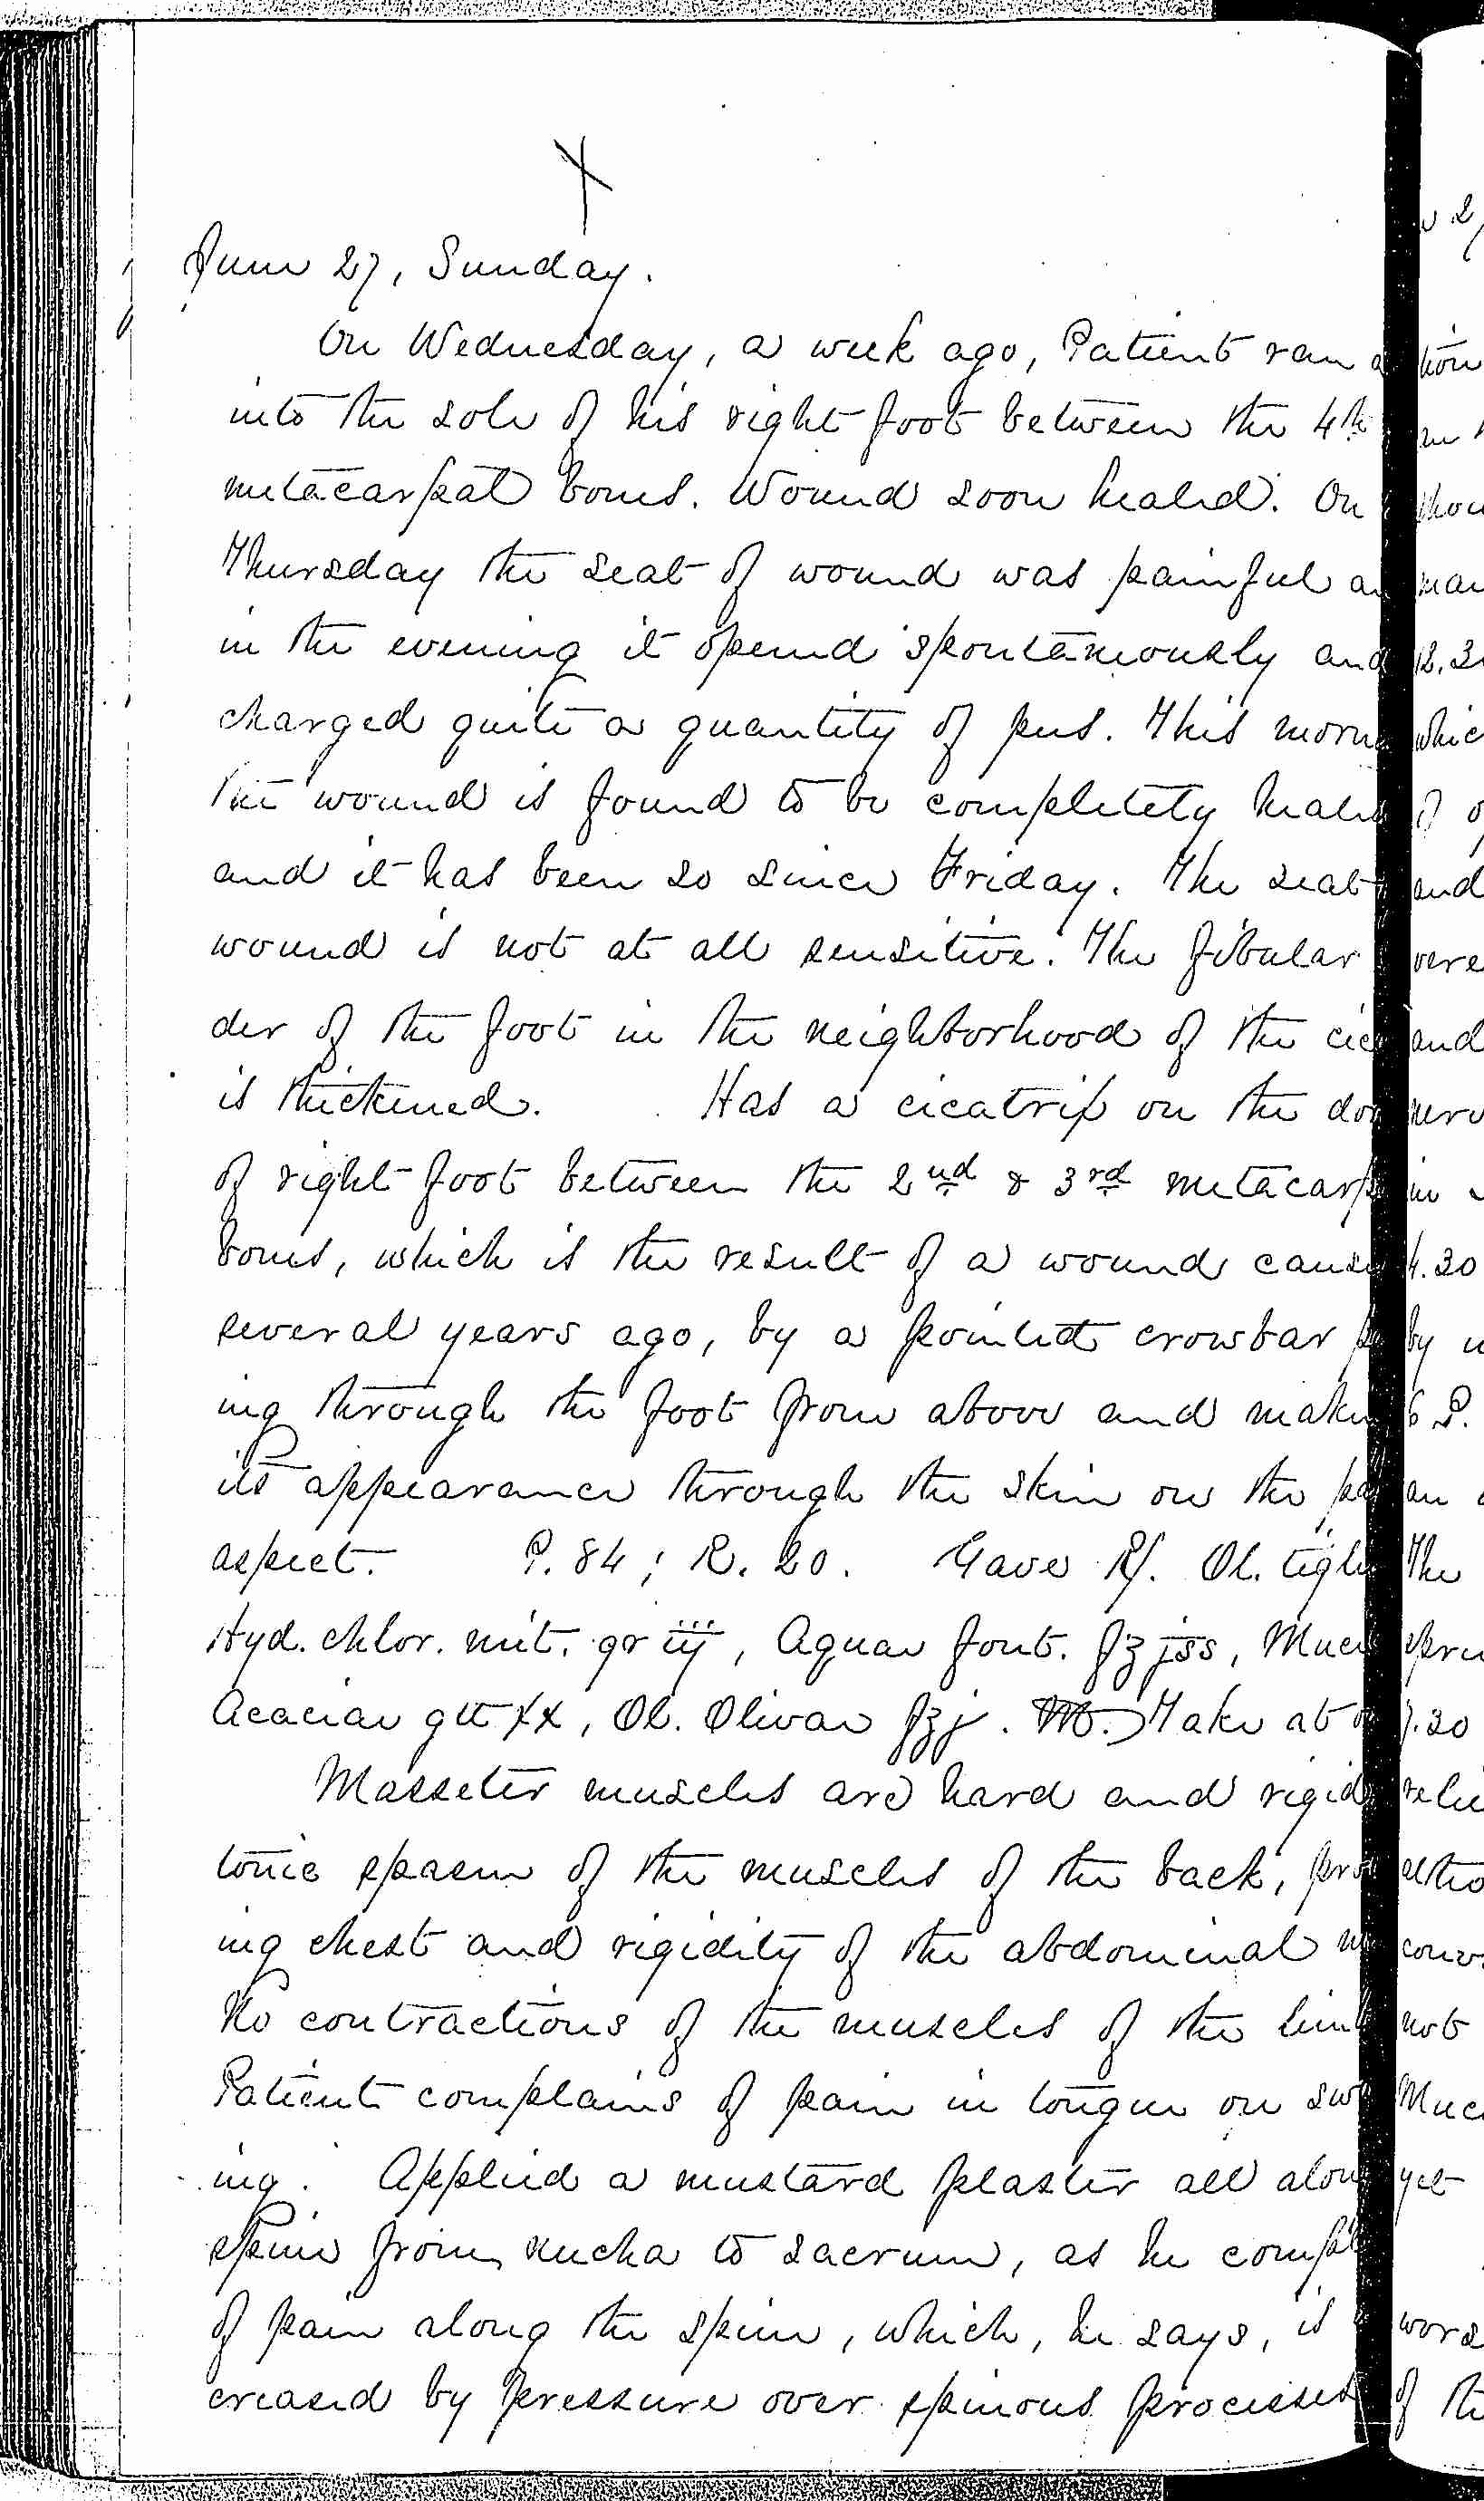 June 27, Sunday.
On Wednesday, a week ago, Patient ran a
into the sole of his right foot between the 4th
metacarpal bones. Wound soon healed. On
Thursday the seat of wound was painful an
in the evening it opened spontaneously and
charged quite a quantity of pus. This morn
the wound is found to be completely heale
and it has been so since Friday. The seat
wound is not at all sensitive. The fibular
der of the foot in the neighborhood of the cic
is thickened. Has a cicatrix on the dor
of right foot between the 2nd & 3rd metacarp
bones, which is the result of a wound cause
several years ago, by a pointed crowbar pa
ing through the foot from above and makin
its appearance through the skin on the pa
aspect. P. 84; R. 20. Gave Rx. Ol. tigli
Hyd. chlor. mit. gr iij, Aquae font. f℥jss, Muci
Acaciae gtt xx, Ol. Olivae f℥j. M. Take at o
Masseter muscles are hard and rigid
tonic spasm of the muscles of the back, pro
ing chest and rigidity of the abdominal m
No contractions of the muscles of the limb
Patient complains of pain in tongue on swa
ing. Applied a mustard plaster all alon
spine from nucha to sacrum, as he compl
of pain along the spine, which, he says, is
creased by pressure over spinous processes